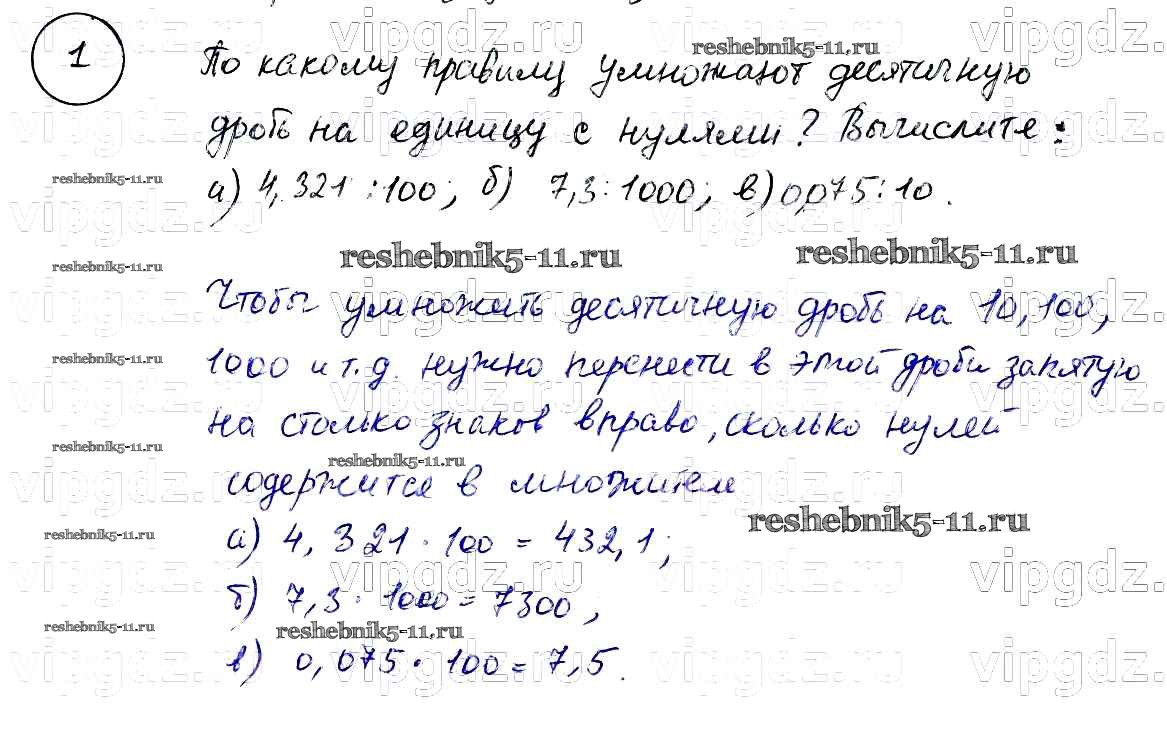 1
По какому правилу умножают десятичную
дробь на единицу с нулями? Вычислите:
а) 4,321 : 100; б) 7,3 : 1000; в) 0,075 : 10.
Чтобы умножить десятичную дробь на 10, 100,
1000 и т.д. нужно перенести в этой дроби запятую
на столько знаков вправо, сколько нулей
содержится в множителе
а) 4,321 · 100 = 432,1;
б) 7,3 · 1000 = 7300;
в) 0,075 · 100 = 7,5.
vipgdz.ru
reshebnik5-11.ru